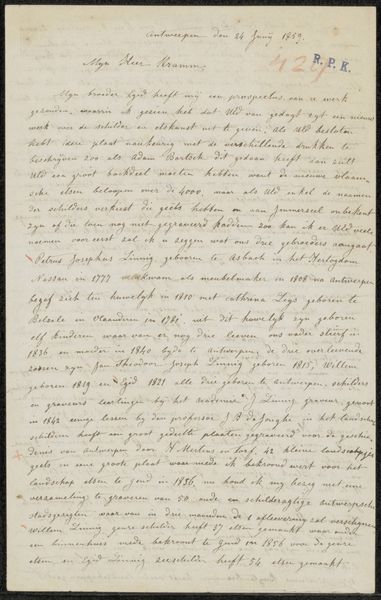 Antwerpen den 24 Junij 1859.
R.P.K.
Mijn Heer Kramm,
Mijn broeder Egid heeft mij een prospectus van u werk
gezonden, waarin ik gezien heb dat Uld van gedagt zijt een nieuw
werk over de schilder en etskunst uit te geven; als Uld besloten
hebt idere plaat naukeurig met de verschillende drukken te
beschrijven zoo als Adam Bartsch dit gedaan heeft dan zult
Uld een groot boekdeel moeten hebben want de nieuwe vlaam-
sche etsen beloopen over de 4000, maar als Uld enkel de naamen
der schilders verkiest die geëts hebben en aan Immerzeel onbekent
zijn of die toen nog niet gegraveerd hadden zoo kan ik er Uld veele
noemen voor eerst zal ik u zeggen wat ons drie gebroeders aangaat
Petrus Josephus Linnig geboren te Asbach in het Hertogdom
Nassau en 1777 kwam als meubelmaker in 1808 na Antwerpen
begaf zich ten huwelijk in 1810 met Cathrina Leys geboren te
Belsele in Vlaanderen en 1781. uit dit huwelijk zijn geboren
elf kinderen waar van er nog drie leeven, ons vader stierf in
1836 en moeder in 1840 byde te Antwerpen, de drie overleevende
zoonen zijn Jan Theodoor Joseph Linnig geboren 1815, Willem
geboren 1819 en Egid 1821 alle drie geboren te Antwerpen, schilders
en graveurs leerlingen bij het academie. J Linnig graveur, genoot
in 1842 eenige lessen bij den professor J B de Jonghe in het landschap
schilderen heeft een groot gedeelte plaaten gegraveerd voor de geschie-
denes van Antwerpen door H Mertens en Torfs, 42 kleine landschapjes
geëts en eene groote plaat voor mede ik bekroond wert voor het
landschap etsen te Gend in 1856, nu houd ik mij bezig met eene
verzameling te graveren van 50 oude en schilderagtige antwerpsche
stadsgezigten waar van in drie maanden de 1 aflevering zal verschijnen
Willem Linnig genre schilder heeft 37 etsen gemaakt waar onder
een binnenhuis mede bekroont te Gend in 1856 voor de genre
etsen, en Egid Linnig zeeschilder heeft 54 etsen gemaakt